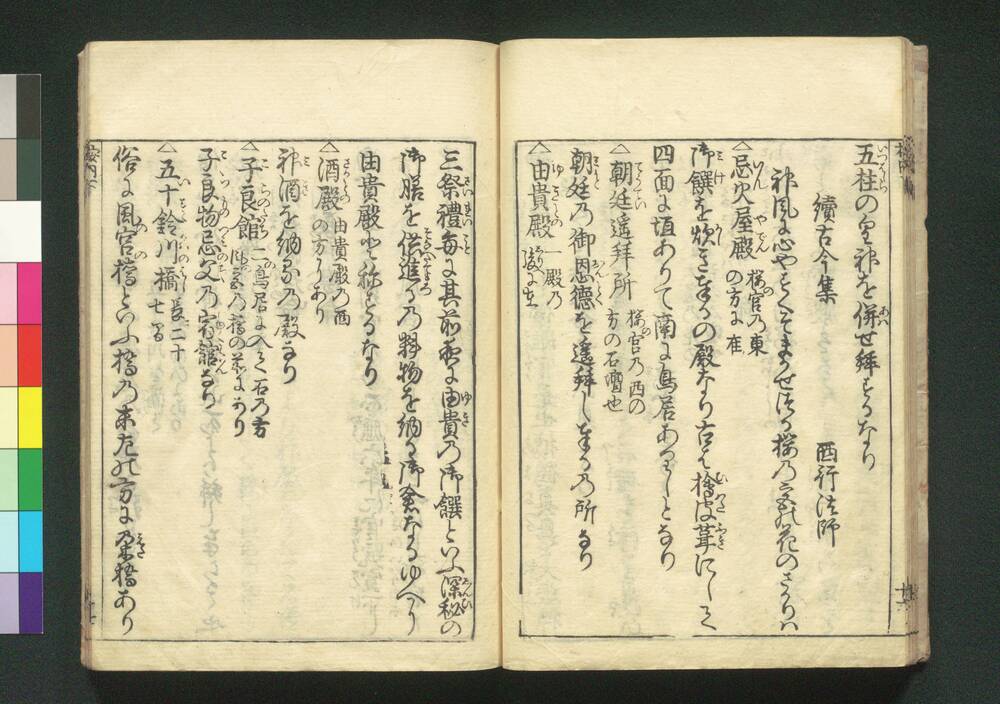 五柱の皇神を併せ拜するなり
續古今集 西行法師
神風に心やすくそまかせつる桜乃宮の花のさかりハ
△忌火屋殿 桜宮乃東の方に在
御饌を炊き奉るの殿なり古は檜皮葺にして
四面に垣ありて南に鳥居ありしとなり
△朝廷遥拜所 桜宮乃西の方の石壇也
朝廷乃御恩徳を遥拜し奉る乃所なり
△由貴殿 一殿乃後に在
三祭禮毎に其前夜に由貴乃御饌といふ深秘の
御膳を供進る乃料物を納る御倉なるゆへ
由貴殿と称するなり
△酒殿 由貴殿乃西の方にあり
神酒を納る乃殿なり
△子良館 二鳥居に入て石乃方
風宮乃橋の前にあり
子良物忌父乃宿舘なり
△五十鈴川橋 長二十七間
俗に風宮橋といふ橋乃東左の方に桑橋あり